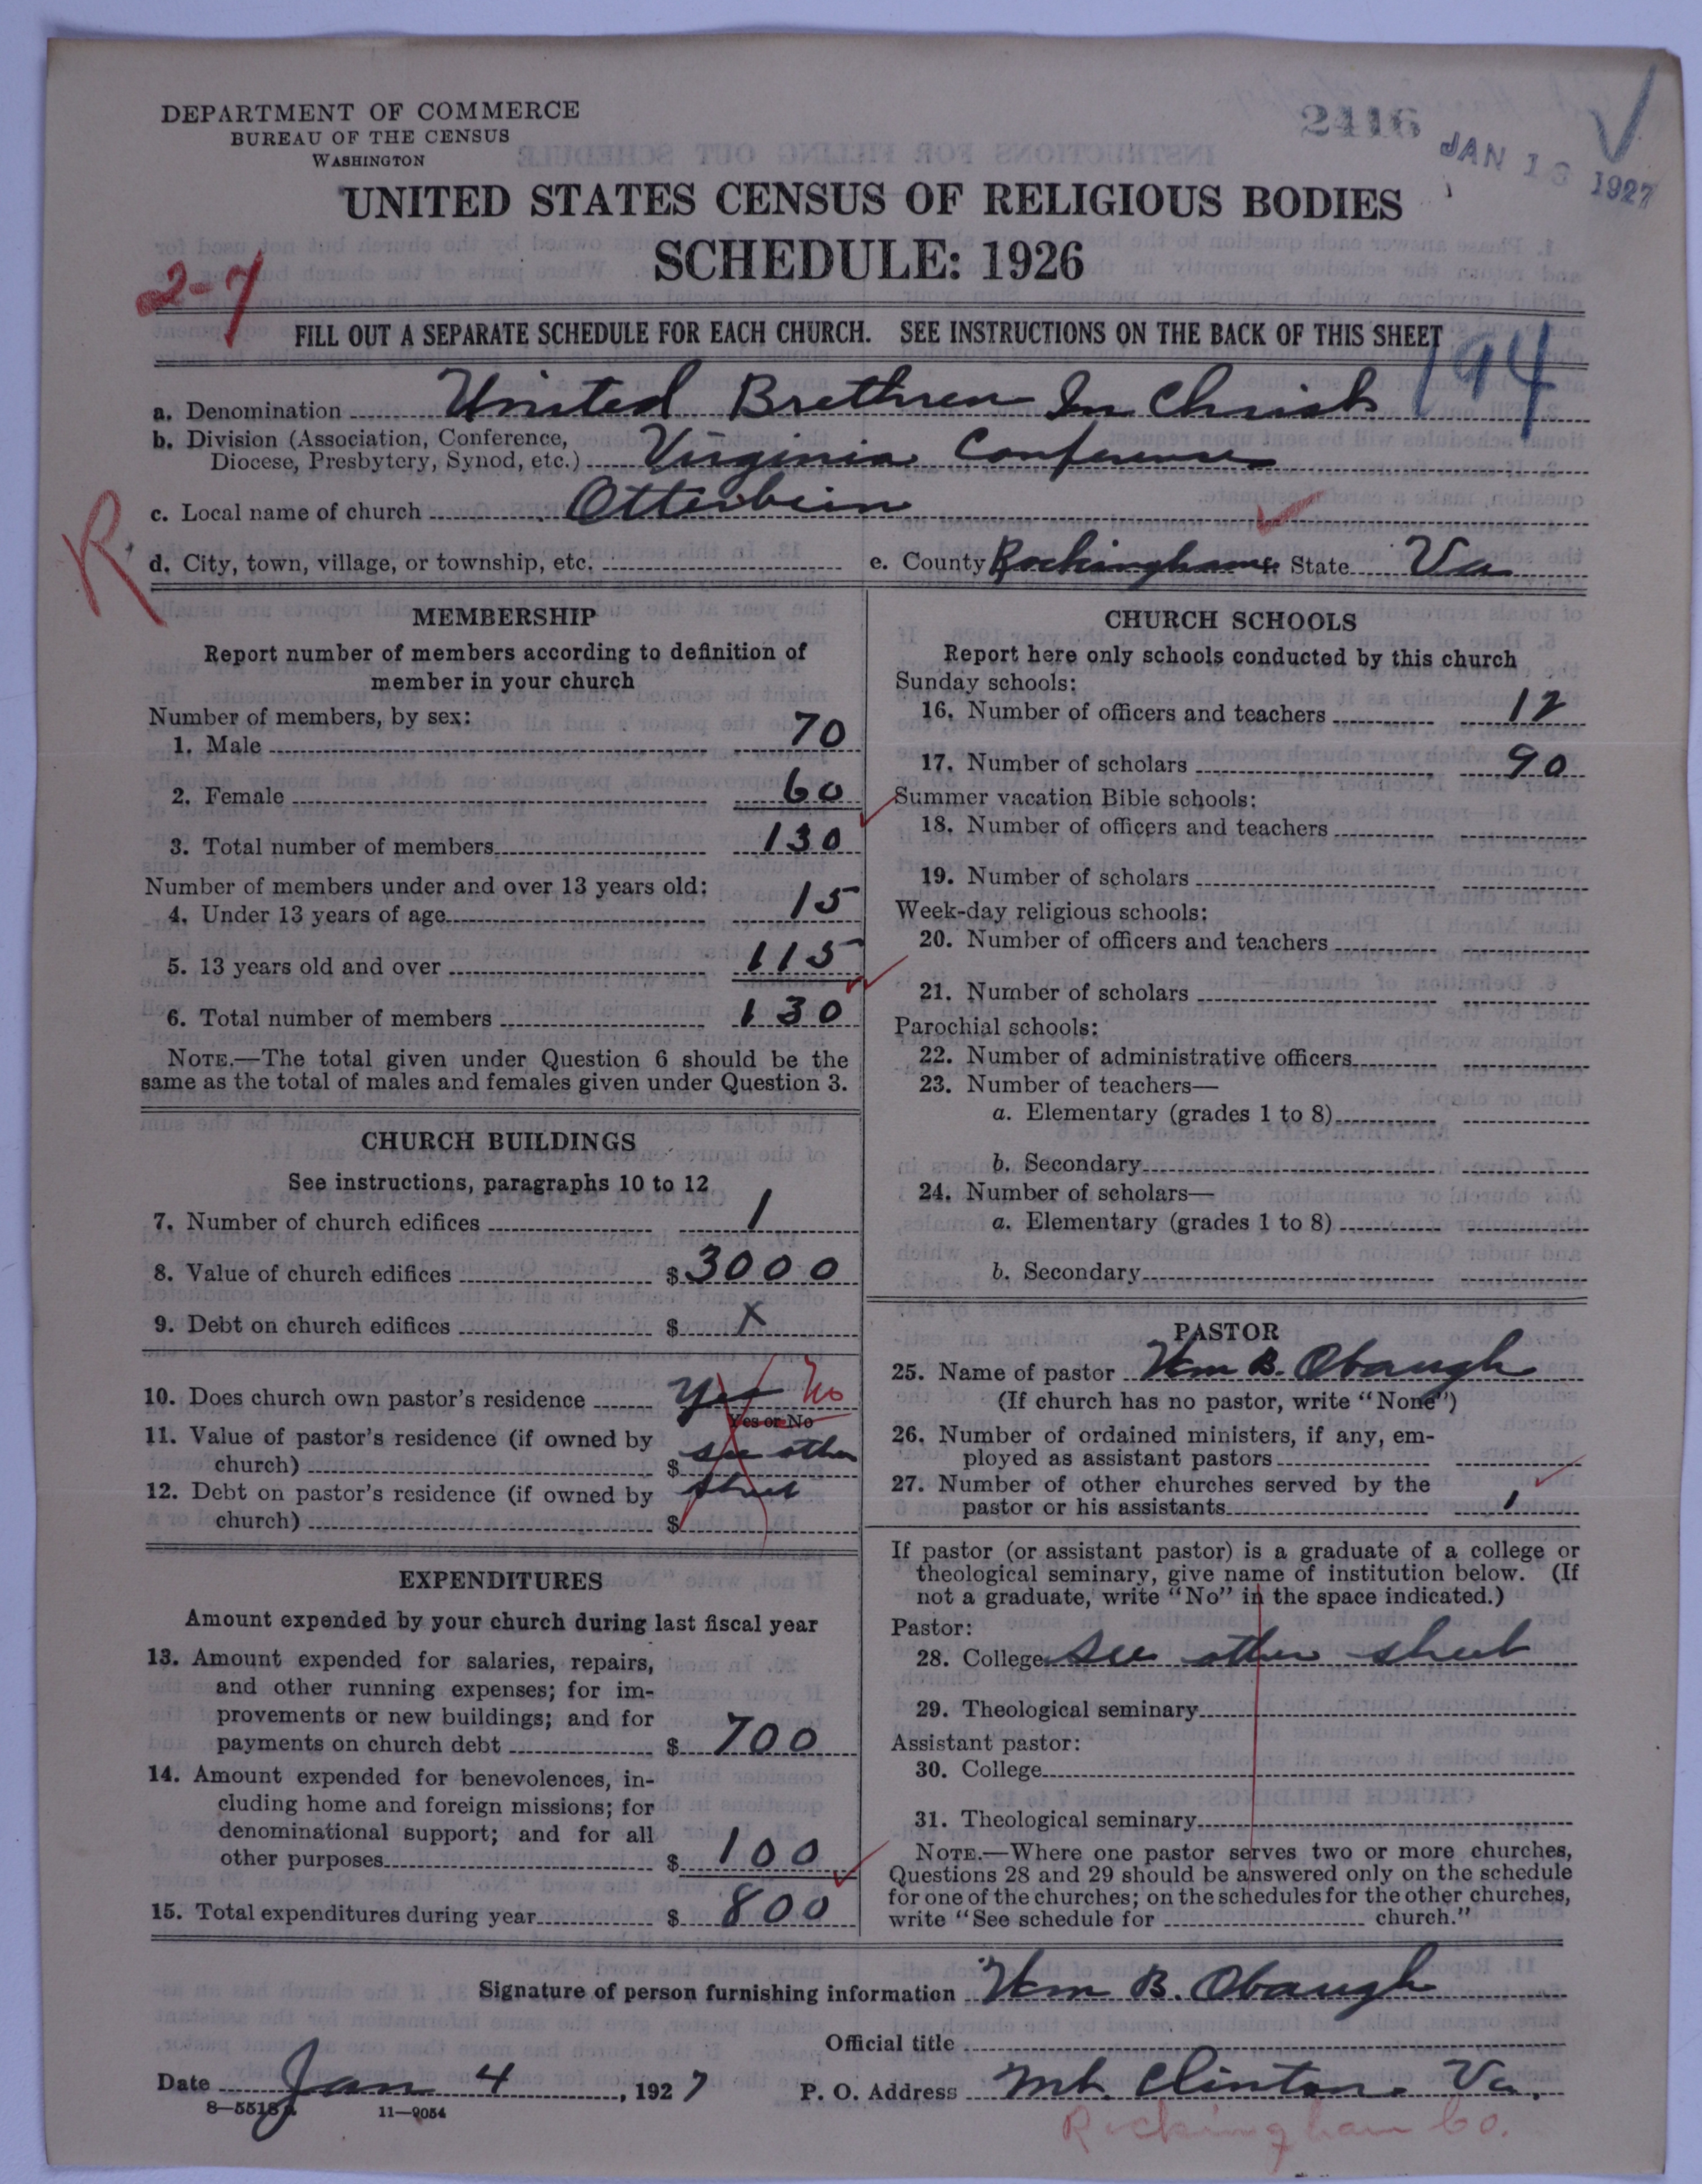 DEPARTMENT OF COMMERCE
BUREAU OF THE CENSUS
WASHINGTON
2416
JAN 13 1927
UNITED STATES CENSUS OF RELIGIOUS BODIES
SCHEDULE: 1926
2-7
FILL OUT A SEPARATE SCHEDULE FOR EACH CHURCH. SEE INSTRUCTIONS ON THE BACK OF THIS SHEET
194
a. Denomination United Brethren In Christ
b. Division (Association, Conference,
Diocese, Presbytery, Synod, etc.) Virginia Conference
c. Local name of church Otterbein
R
d. City, town, village, or township, etc. e. County Rockingham f. State Va
MEMBERSHIP
Report number of members according to definition of
member in your church
Number of members, by sex:
1. Male 70
2. Female 60
3. Total number of members 130
Number of members under and over 13 years old:
4. Under 13 years of age 15
5. 13 years old and over 115
6. Total number of members 130
NOTE.—The total given under Question 6 should be the
same as the total of males and females given under Question 3.
CHURCH BUILDINGS
See instructions, paragraphs 10 to 12
7. Number of church edifices 1
8. Value of church edifices $ 3000
9. Debt on church edifices $ X
10. Does church own pastor's residence Yes No
Yes or No
11. Value of pastor's residence (if owned by
church) $ see other
12. Debt on pastor's residence (if owned by sheet
church) $
EXPENDITURES
Amount expended by your church during last fiscal year
13. Amount expended for salaries, repairs,
and other running expenses; for im-
provements or new buildings; and for
payments on church debt $ 700
14. Amount expended for benevolences, in-
cluding home and foreign missions; for
denominational support; and for all
other purposes $ 100
15. Total expenditures during year $ 800
CHURCH SCHOOLS
Report here only schools conducted by this church
Sunday schools:
16. Number of officers and teachers 12
17. Number of scholars 90
Summer vacation Bible schools:
18. Number of officers and teachers
19. Number of scholars
Week-day religious schools:
20. Number of officers and teachers
21. Number of scholars
Parochial schools:
22. Number of administrative officers
23. Number of teachers—
a. Elementary (grades 1 to 8)
b. Secondary
24. Number of scholars—
a. Elementary (grades 1 to 8)
b. Secondary
PASTOR
25. Name of pastor Wm B. Obaugh
(If church has no pastor, write "None")
26. Number of ordained ministers, if any, em-
ployed as assistant pastors
27. Number of other churches served by the
pastor or his assistants 1
If pastor (or assistant pastor) is a graduate of a college or
theological seminary, give name of institution below. (If
not a graduate, write "No" in the space indicated.)
Pastor:
28. College See other sheet
29. Theological seminary
Assistant pastor:
30. College
31. Theological seminary
NOTE.—Where one pastor serves two or more churches,
Questions 28 and 29 should be answered only on the schedule
for one of the churches; on the schedules for the other churches,
write "See schedule for church."
Signature of person furnishing information Wm B. Obaugh
Official title
Date Jan 4, 1927 P. O. Address Mt. Clinton. Va.
8—5518 11—9054
Rockingham Co.